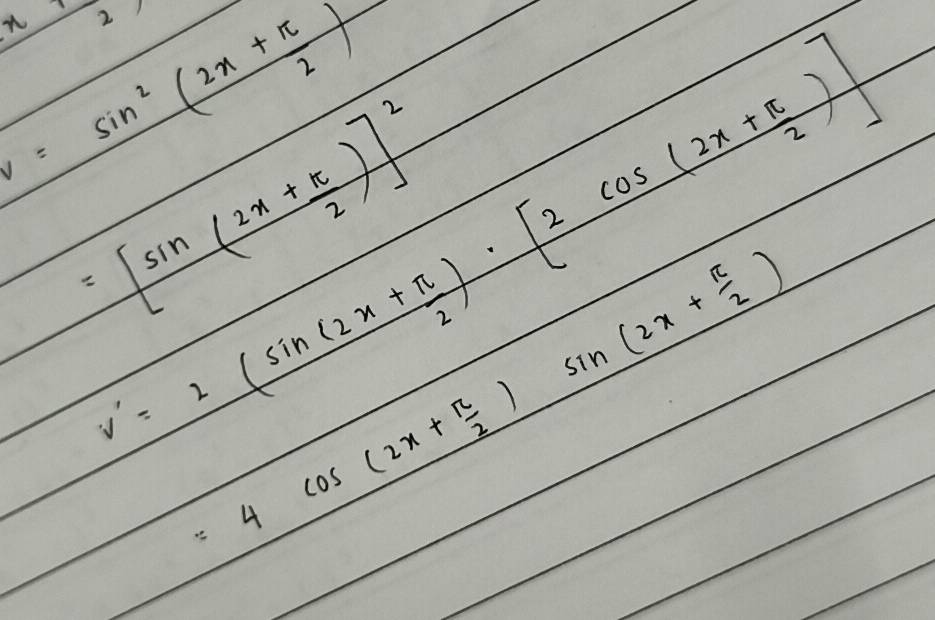 x + 2)
v = sin² (2x + π/2)
= [sin (2x + π/2)]²
v' = 2 (sin (2x + π/2) · [2 cos (2x + π/2)]
= 4 cos (2x + π/2) sin (2x + π/2)